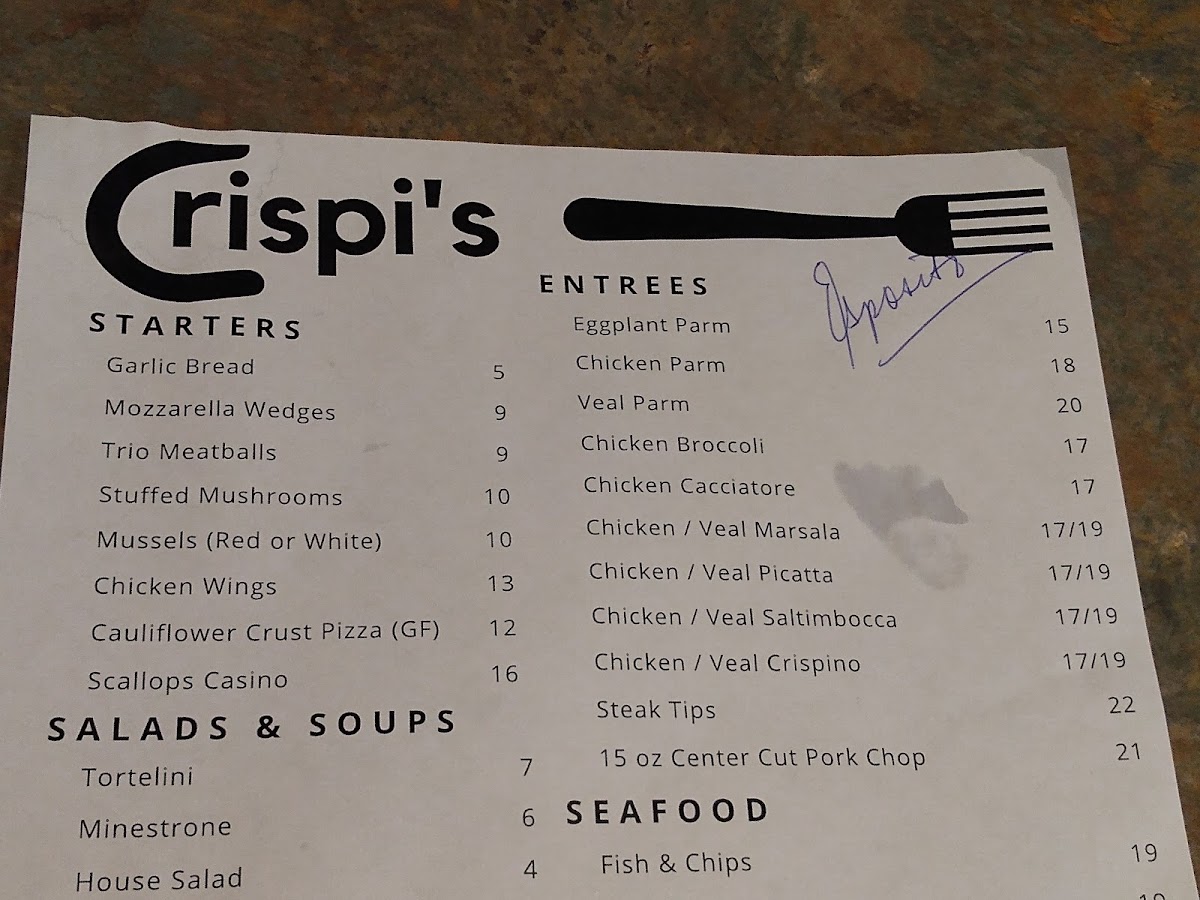 Crispi's
STARTERS
Garlic Bread 5
Mozzarella Wedges 9
Trio Meatballs 9
Stuffed Mushrooms 10
Mussels (Red or White) 10
Chicken Wings 13
Cauliflower Crust Pizza (GF) 12
Scallops Casino 16
SALADS & SOUPS
Tortelini 7
Minestrone 6
House Salad 4
ENTREES
Esposito
Eggplant Parm 15
Chicken Parm 18
Veal Parm 20
Chicken Broccoli 17
Chicken Cacciatore 17
Chicken / Veal Marsala 17/19
Chicken / Veal Picatta 17/19
Chicken / Veal Saltimbocca 17/19
Chicken / Veal Crispino 17/19
Steak Tips 22
15 oz Center Cut Pork Chop 21
SEAFOOD
Fish & Chips 19